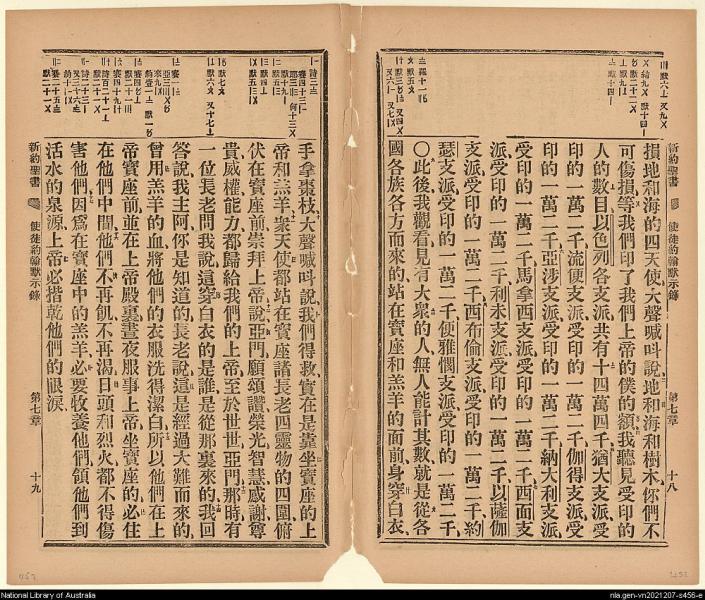 新約聖書
使徒約翰默示錄
第七章
十八
損地和海的四天使大聲喊叫說地和海和樹木你們不
可傷損等我們印了我們上帝的僕的額我聽見受印的
人的數目以色列各支派共有十四萬四千猶大支派受
印的一萬二千流便支派受印的一萬二千伽得支派受
印的一萬二千亞涉支派受印的一萬二千納大利支派
受印的一萬二千馬拿西支派受印的一萬二千西面支
派受印的一萬二千利未支派受印的一萬二千以薩伽
支派受印的一萬二千西布倫支派受印的一萬二千約
瑟支派受印的一萬二千便雅憫支派受印的一萬二千
〇此後我觀看見有大衆的人無人能計其數就是從各
國各族各方而來的站在寶座和羔羊的面前身穿白衣
手拿棗枝大聲喊叫說我們得救實在是靠坐寶座的上
帝和羔羊衆天使都站在寶座諸長老四靈物的四圍俯
伏在寶座前崇拜上帝說亞門願頌讚榮光智慧感謝尊
貴威權能力都歸給我們的上帝至於世世亞門那時有
一位長老問我說這穿白衣的是誰是從那裏來的我回
答說我主阿你是知道的長老說這是經過大難而來的
曾用羔羊的血將他們的衣服洗得潔白所以他們在上
帝寶座前並在上帝殿裏晝夜服事上帝坐寶座的必住
在他們中間他們不再飢不再渴日頭和烈火都不得傷
害他們因爲在寶座中的羔羊必要牧養他們領他們到
活水的泉源上帝必揩乾他們的眼淚
新約聖書
使徒約翰默示錄
第七章
十九
National Library of Australia
nla.gen-vn2021207-s456-e